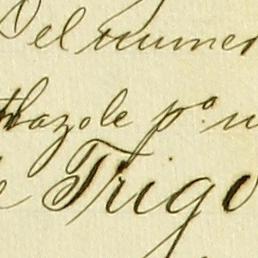 del numer
Mazole pº u
e Trigo